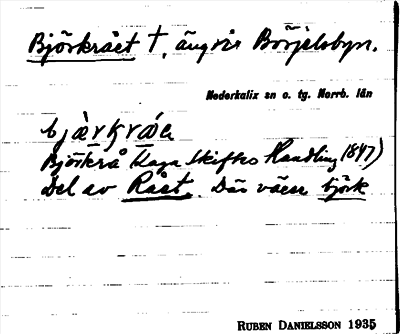 Björkrået †, äng vid Börjelsbyn.
Nederkalix sn o. tg. Norrb. län
Björkrå Laga Skiftes Handling 1847)
Del av Rået. Där växer björk
RUBEN DANIELSSON 1935